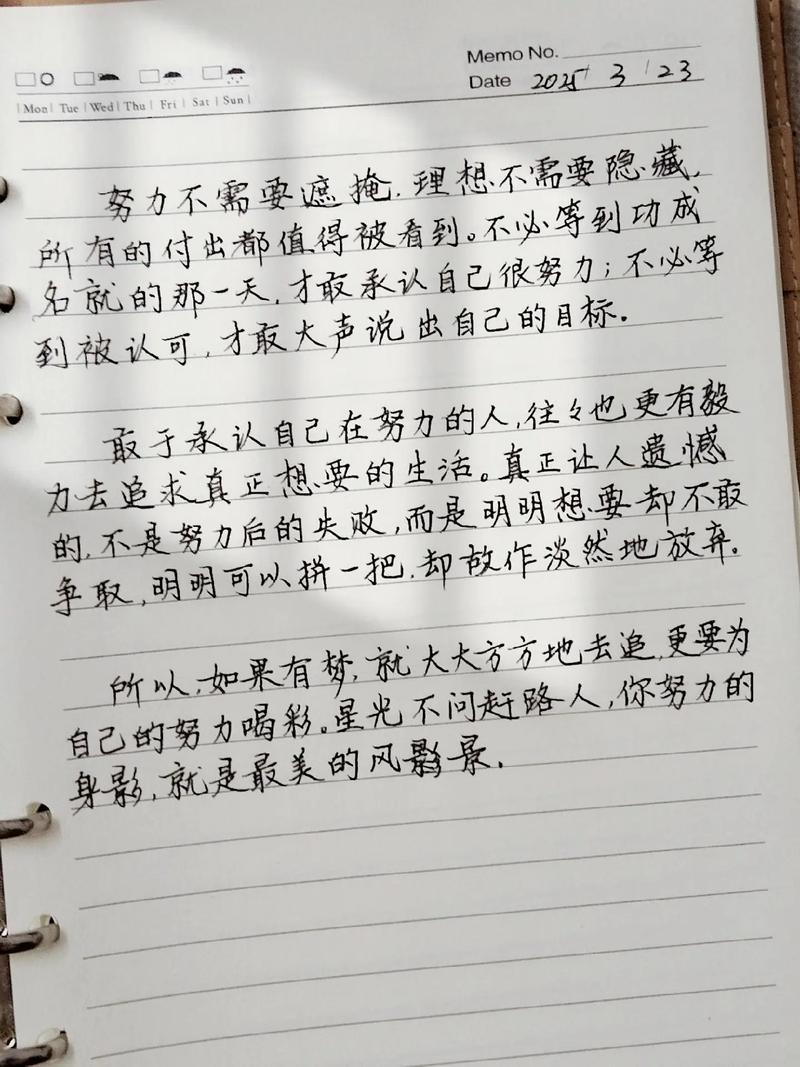 Memo No.
Date 2025 / 3 / 23
Mon Tue Wed Thu Fri Sat Sun
努力不需要遮掩,理想不需要隐藏,
所有的付出都值得被看到。不必等到功成
名就的那一天,才敢承认自己很努力;不必等
到被认可,才敢大声说出自己的目标.
敢于承认自己在努力的人,往々也更有毅
力去追求真正想要的生活。真正让人遗憾
的,不是努力后的失败,而是明明想要却不敢
争取,明明可以拼一把,却故作淡然地放弃。
所以,如果有梦,就大大方方地去追,更要为
自己的努力喝彩。星光不问赶路人,你努力的
身影,就是最美的风影景.